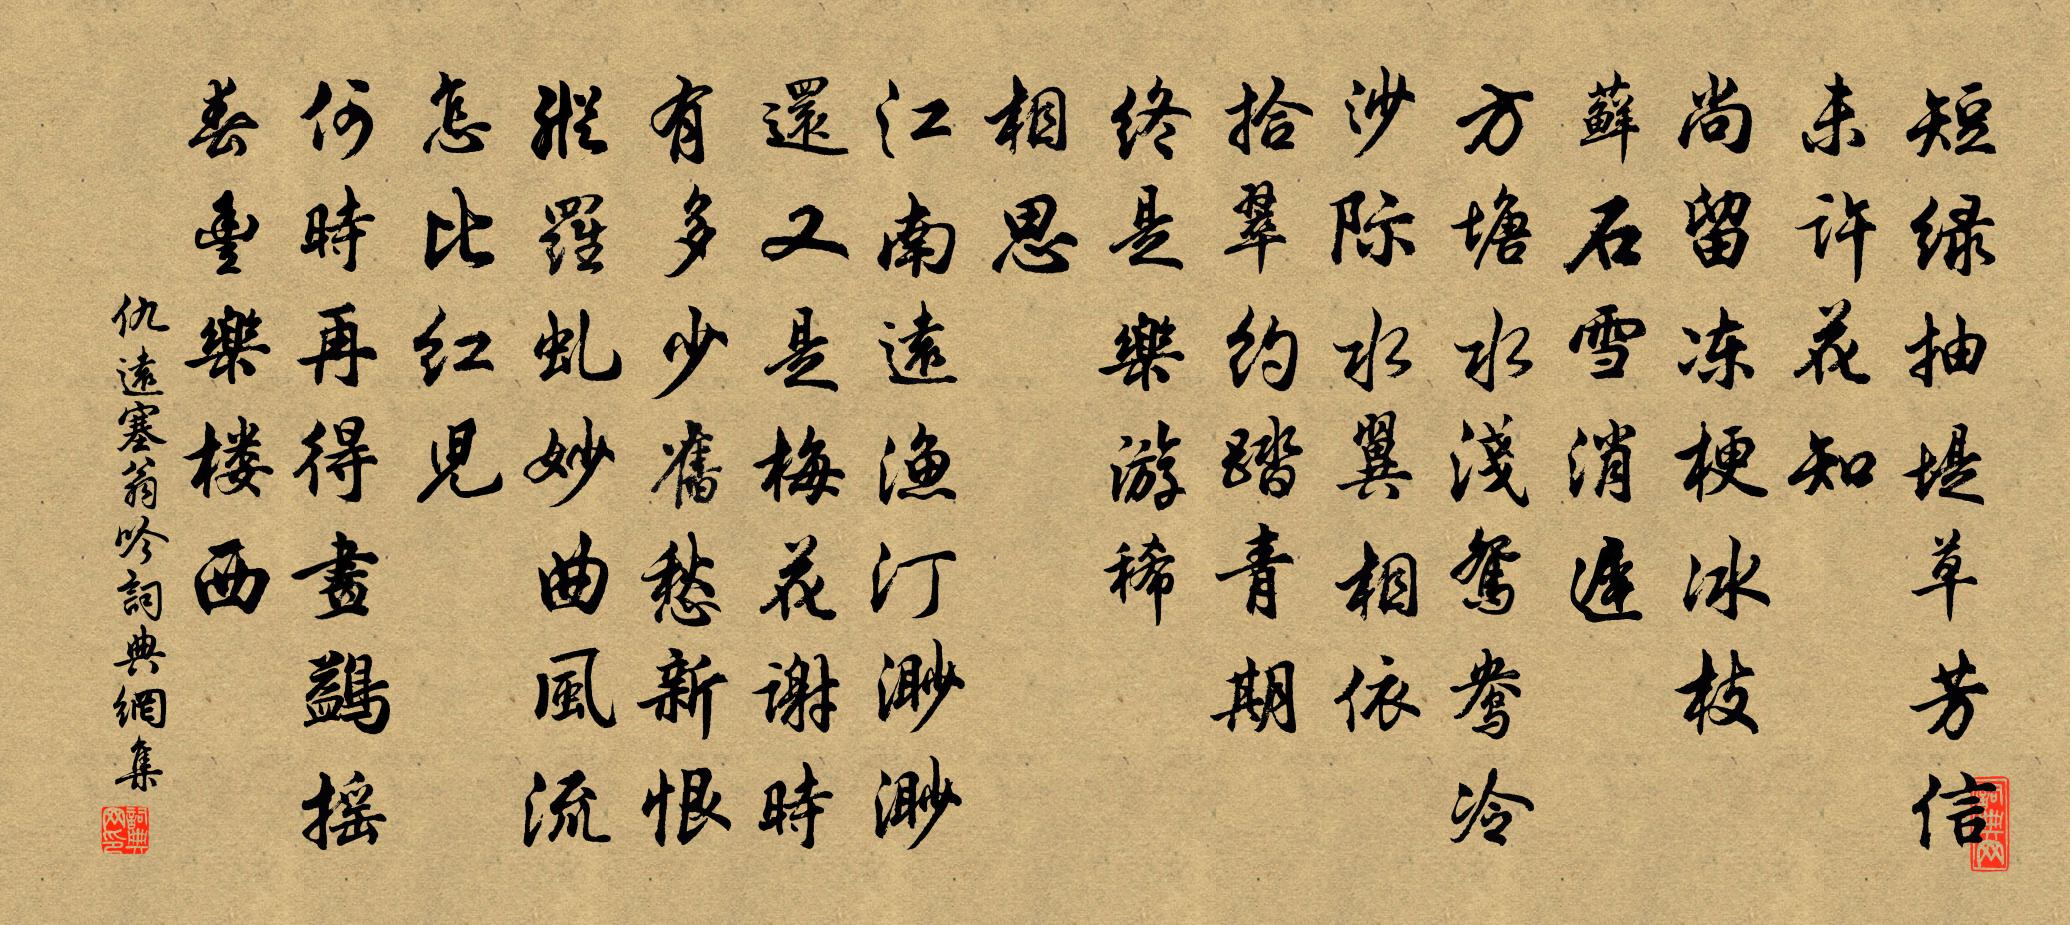 短绿抽堤草芳信
未许花知
尚留冻梗冰枝
藓石雪消遲
方塘水淺鴛鴦冷
沙际水翼相依
拾翠约踏青期
终是樂游稀
相思
江南遠漁汀渺渺
還又是梅花谢時
有多少舊愁新恨
縱羅虬妙曲風流
怎比红児
何時再得畫鷁摇
春豐樂楼西
仇遠塞翁吟詞典網集
詞典网印
詞典网